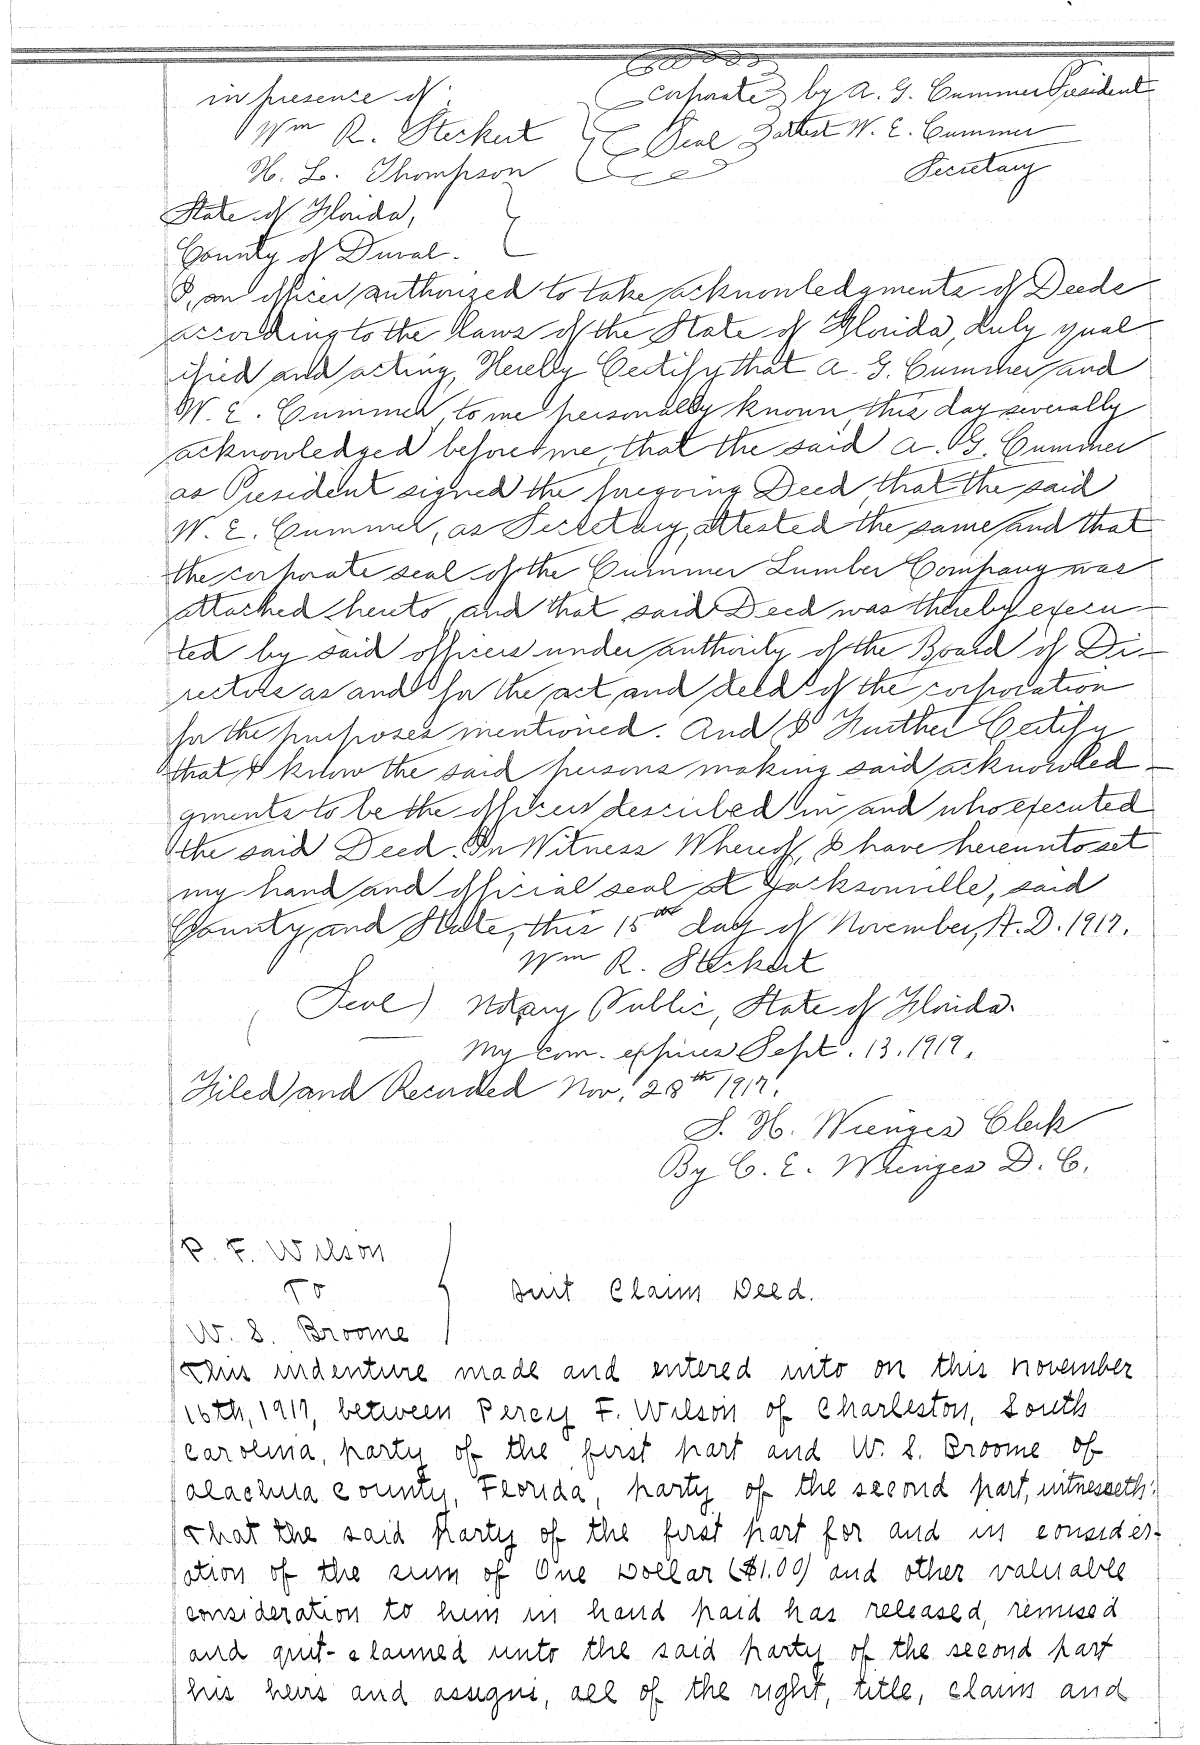 in presence of: Corporate by A. G. Cummer President
Wm R. Steckert Seal attest W. E. Cummer
H. L. Thompson Secretary
State of Florida,
County of Duval.
I, an officer authorized to take acknowledgments of Deeds
according to the laws of the State of Florida, duly qual
ified and acting, Hereby Certify that A. G. Cummer and
W. E. Cummer, to me personally known, this day severally
acknowledged before me, that the said A. G. Cummer
as President signed the foregoing Deed, that the said
W. E. Cummer, as Secretary, attested the same and that
the corporate seal of the Cummer Lumber Company was
attached hereto, and that said Deed was thereby execu-
ted by said officers under authority of the Board of Di-
rectors as and for the act and deed of the corporation
for the purposes mentioned. And I Further Certify
that I know the said persons making said acknowled-
gments to be the officers described in and who executed
the said Deed. In Witness Whereof, I have hereunto set
my hand and official seal at Jacksonville, said
County and State, this 15th day of November, A.D. 1917.
Wm R. Steckert
(Seal) Notary Public, State of Florida.
My com. expires Sept. 13, 1919.
Filed and Recorded Nov. 28th 1917.
S. H. Wienges Clerk
By C. E. Wienges D. C.
P. F. Wilson
To Quit Claim Deed.
W. S. Broome
This indenture made and entered into on this November
16th, 1917, between Percy F. Wilson of Charleston, South
Carolina, party of the first part and W. S. Broome of
Alachua County, Florida, party of the second part, witnesseth:
That the said party of the first part for and in consider-
ation of the sum of One Dollar ($1.00) and other valuable
consideration to him in hand paid has released, remised
and quit-claimed unto the said party of the second part
his heirs and assigns, all of the right, title, claim and